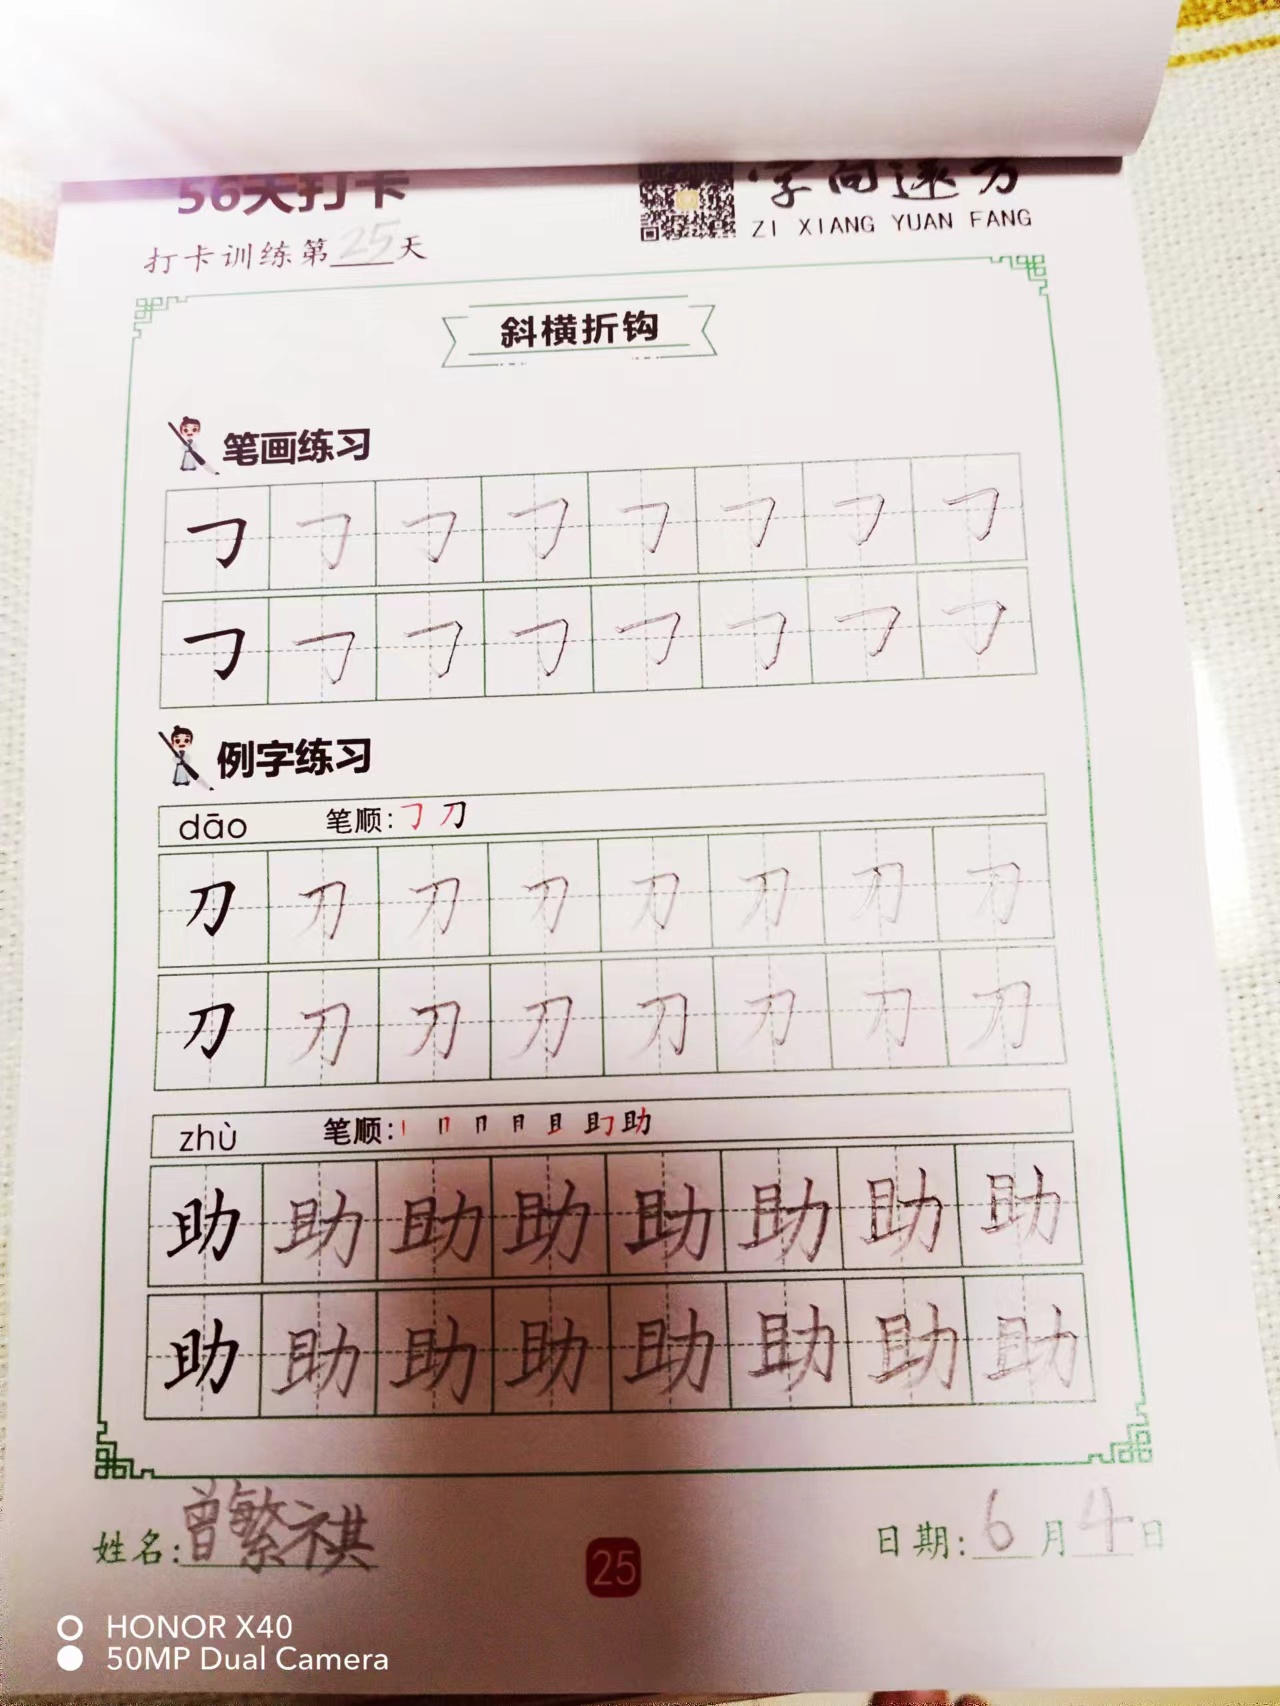 56天打卡
字向远方
ZI XIANG YUAN FANG
打卡训练第25天
斜横折钩
笔画练习
㇆ ㇆ ㇆ ㇆ ㇆ ㇆ ㇆ ㇆
㇆ ㇆ ㇆ ㇆ ㇆ ㇆ ㇆ ㇆
例字练习
dāo 笔顺: ㇆ 刀
刀 刀 刀 刀 刀 刀 刀 刀
刀 刀 刀 刀 刀 刀 刀 刀
zhù 笔顺: 丨 冂 月 且 助
助 助 助 助 助 助 助 助
助 助 助 助 助 助 助 助
姓名:曾繁祺
25
日期:6月4日
HONOR X40
50MP Dual Camera